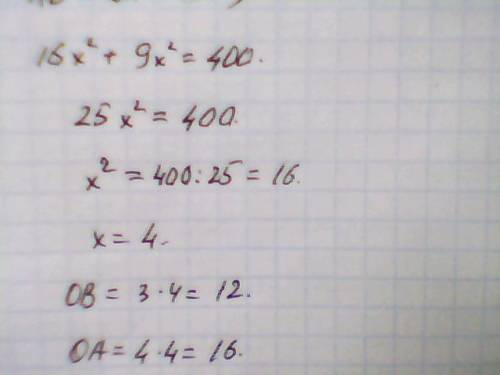 16x² + 9x² = 400.
25x² = 400.
x² = 400:25 = 16.
x = 4.
OB = 3·4 = 12.
OA = 4·4 = 16.